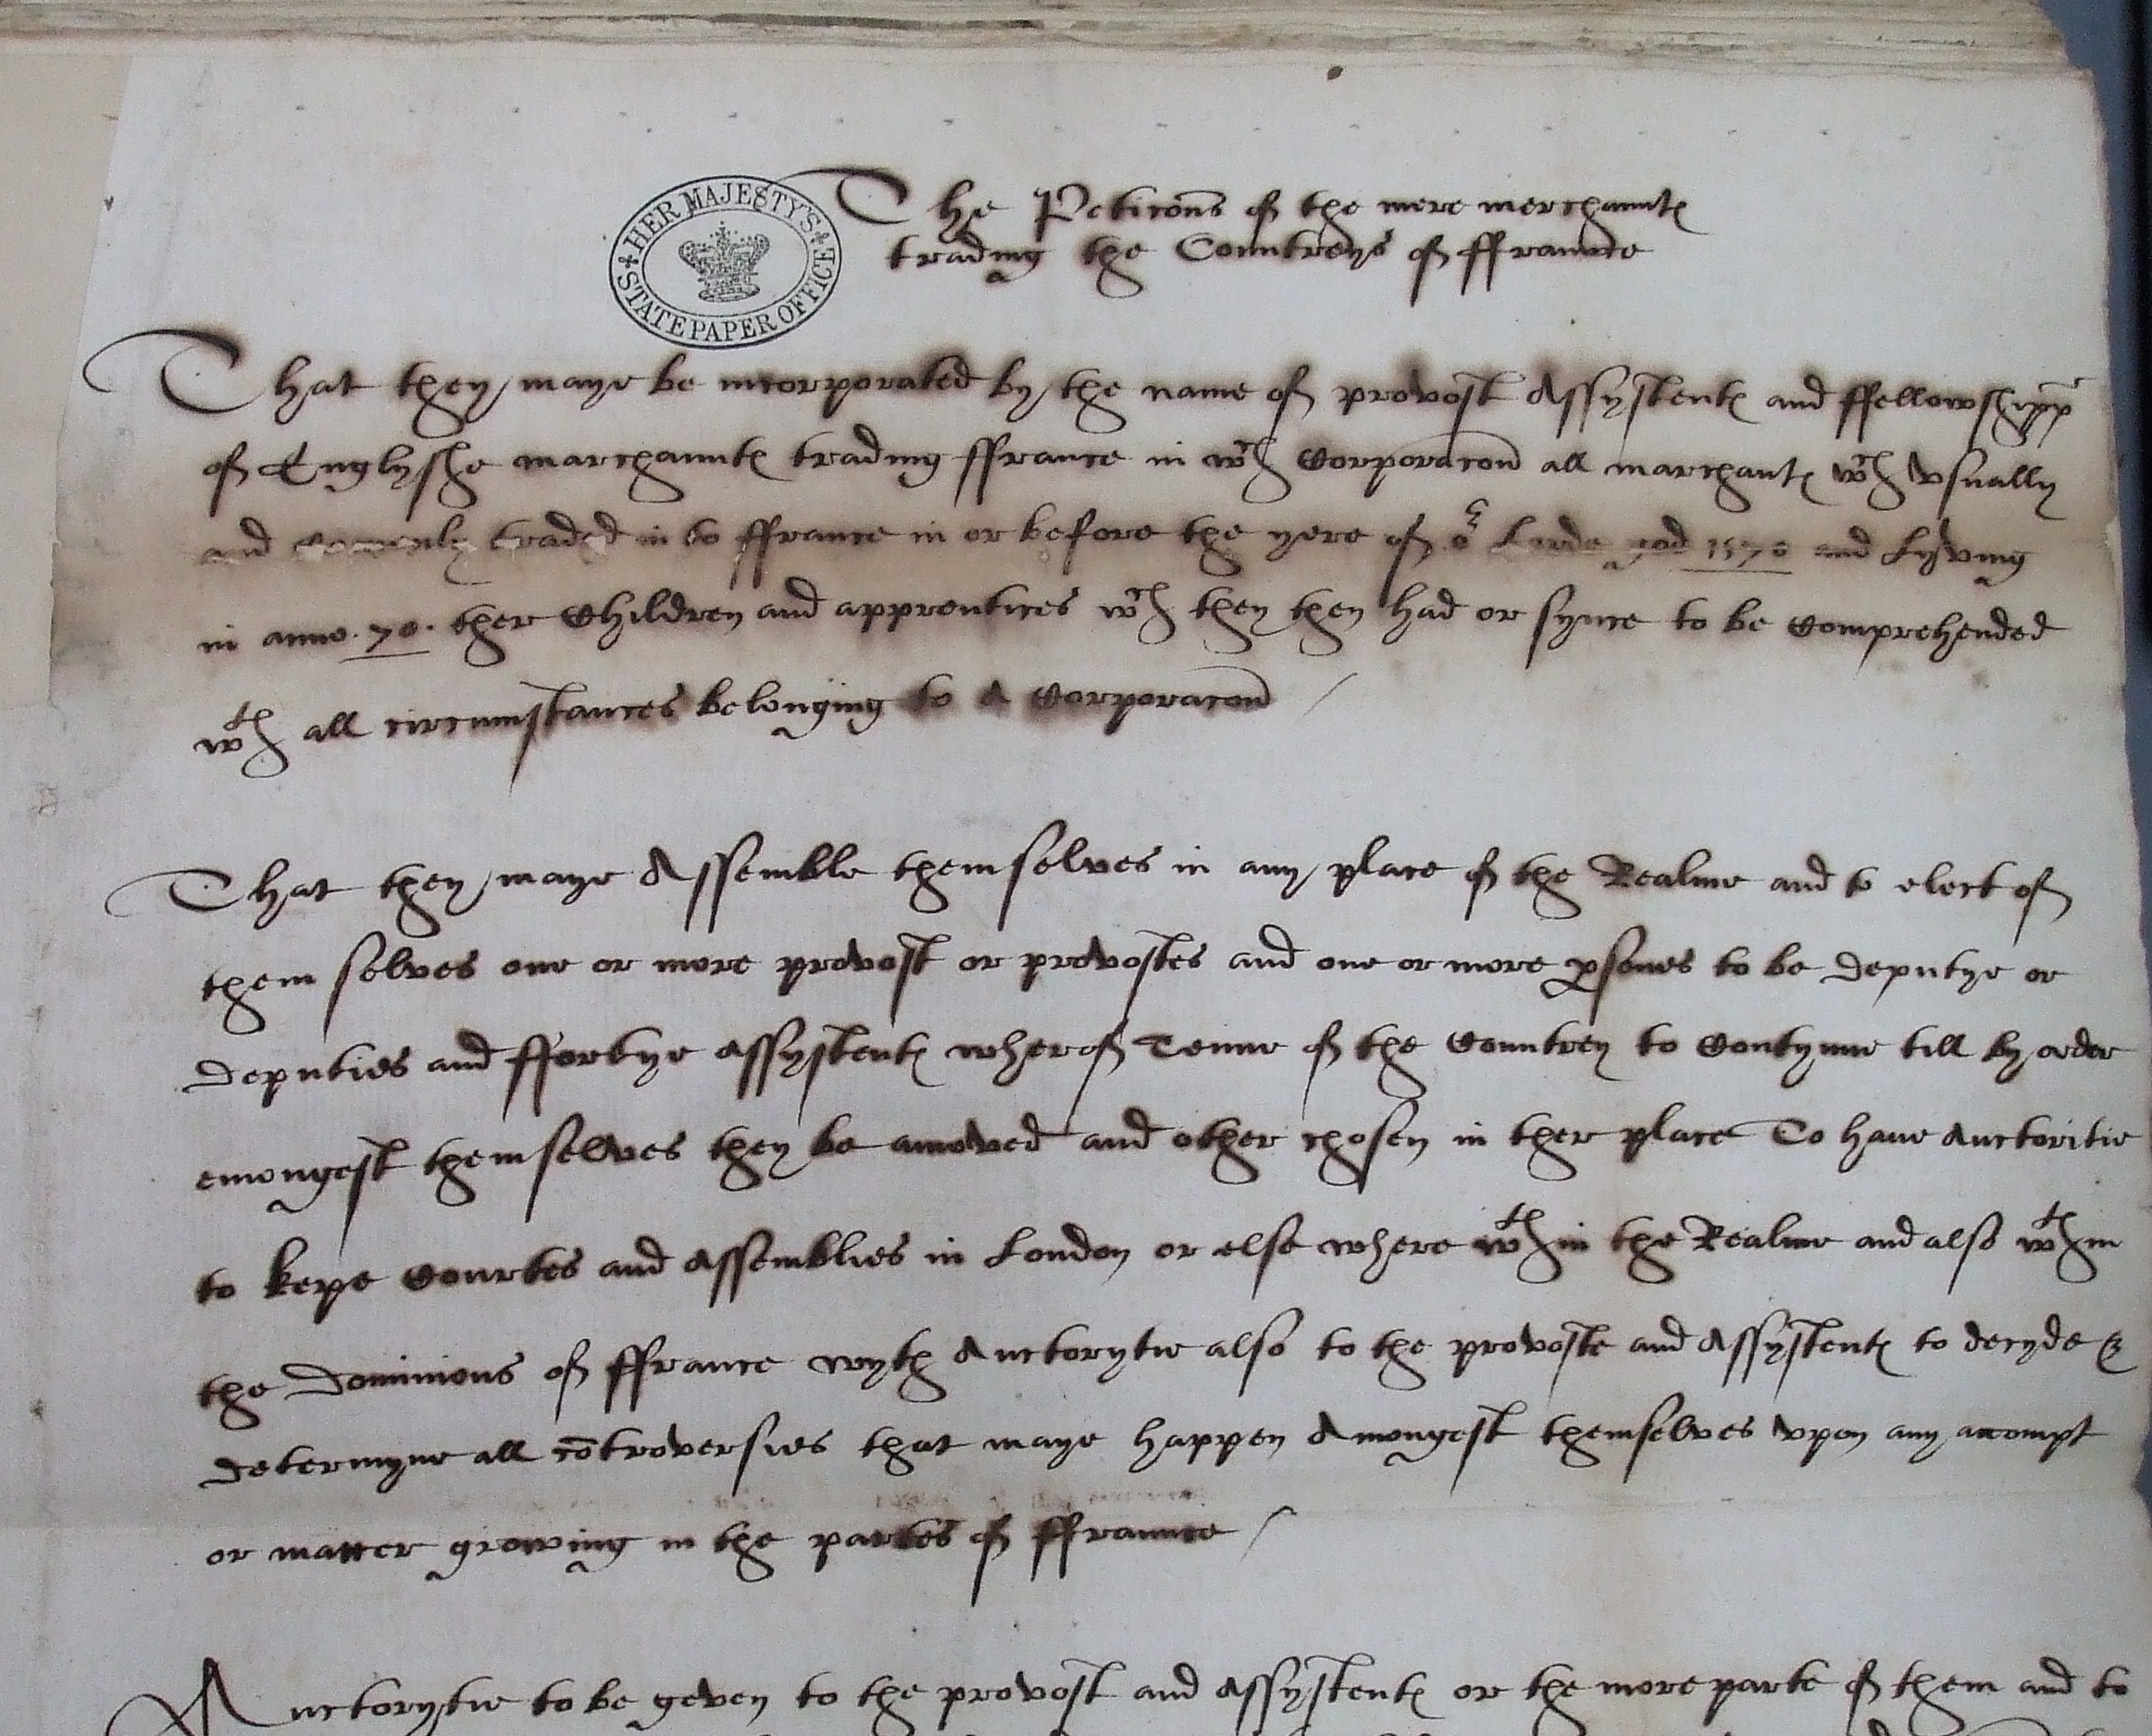 HER MAJESTY'S STATE PAPER OFFICE
The Peticōns of the mere merchaunts
trading the Countreys of ffraunce
That they maye be incorporated by the name of provost Assystents and ffellowshipp
of Englyshe marchaunts trading ffrance in wch Corporacōn all marchants wch vsually
and comonly traded in to ffrance in or before the yere of or Lorde god 1570 and Lyving
in anno .70. ther Children and apprentices wch they then had or synce to be Comprehended
wth all circumstances belonging to A Corporacōn /
That they maye Assemble themselves in any place of the Realme and to elect of
them selves one or more provost or provostes and one or more psones to be deputye or
deputies and ffortye Assystents wherof Tenne of the Countrey to Contynue till by order
emongest themselves they be amoved and other chosen in ther place To have Auctoritie
to kepe Courtes and Assemblies in London or else where wthin the Realme and also wthin
the dominions of ffrance wyth Auctorytie also to the provoste and Assystents to decyde &
determyne all cōtroversies that maye happen Amongest themselves vpon any accompt
or matter growing in the partes of ffraunce /
Auctorytie to be geven to the provost and Assystents or the more parte of them and to